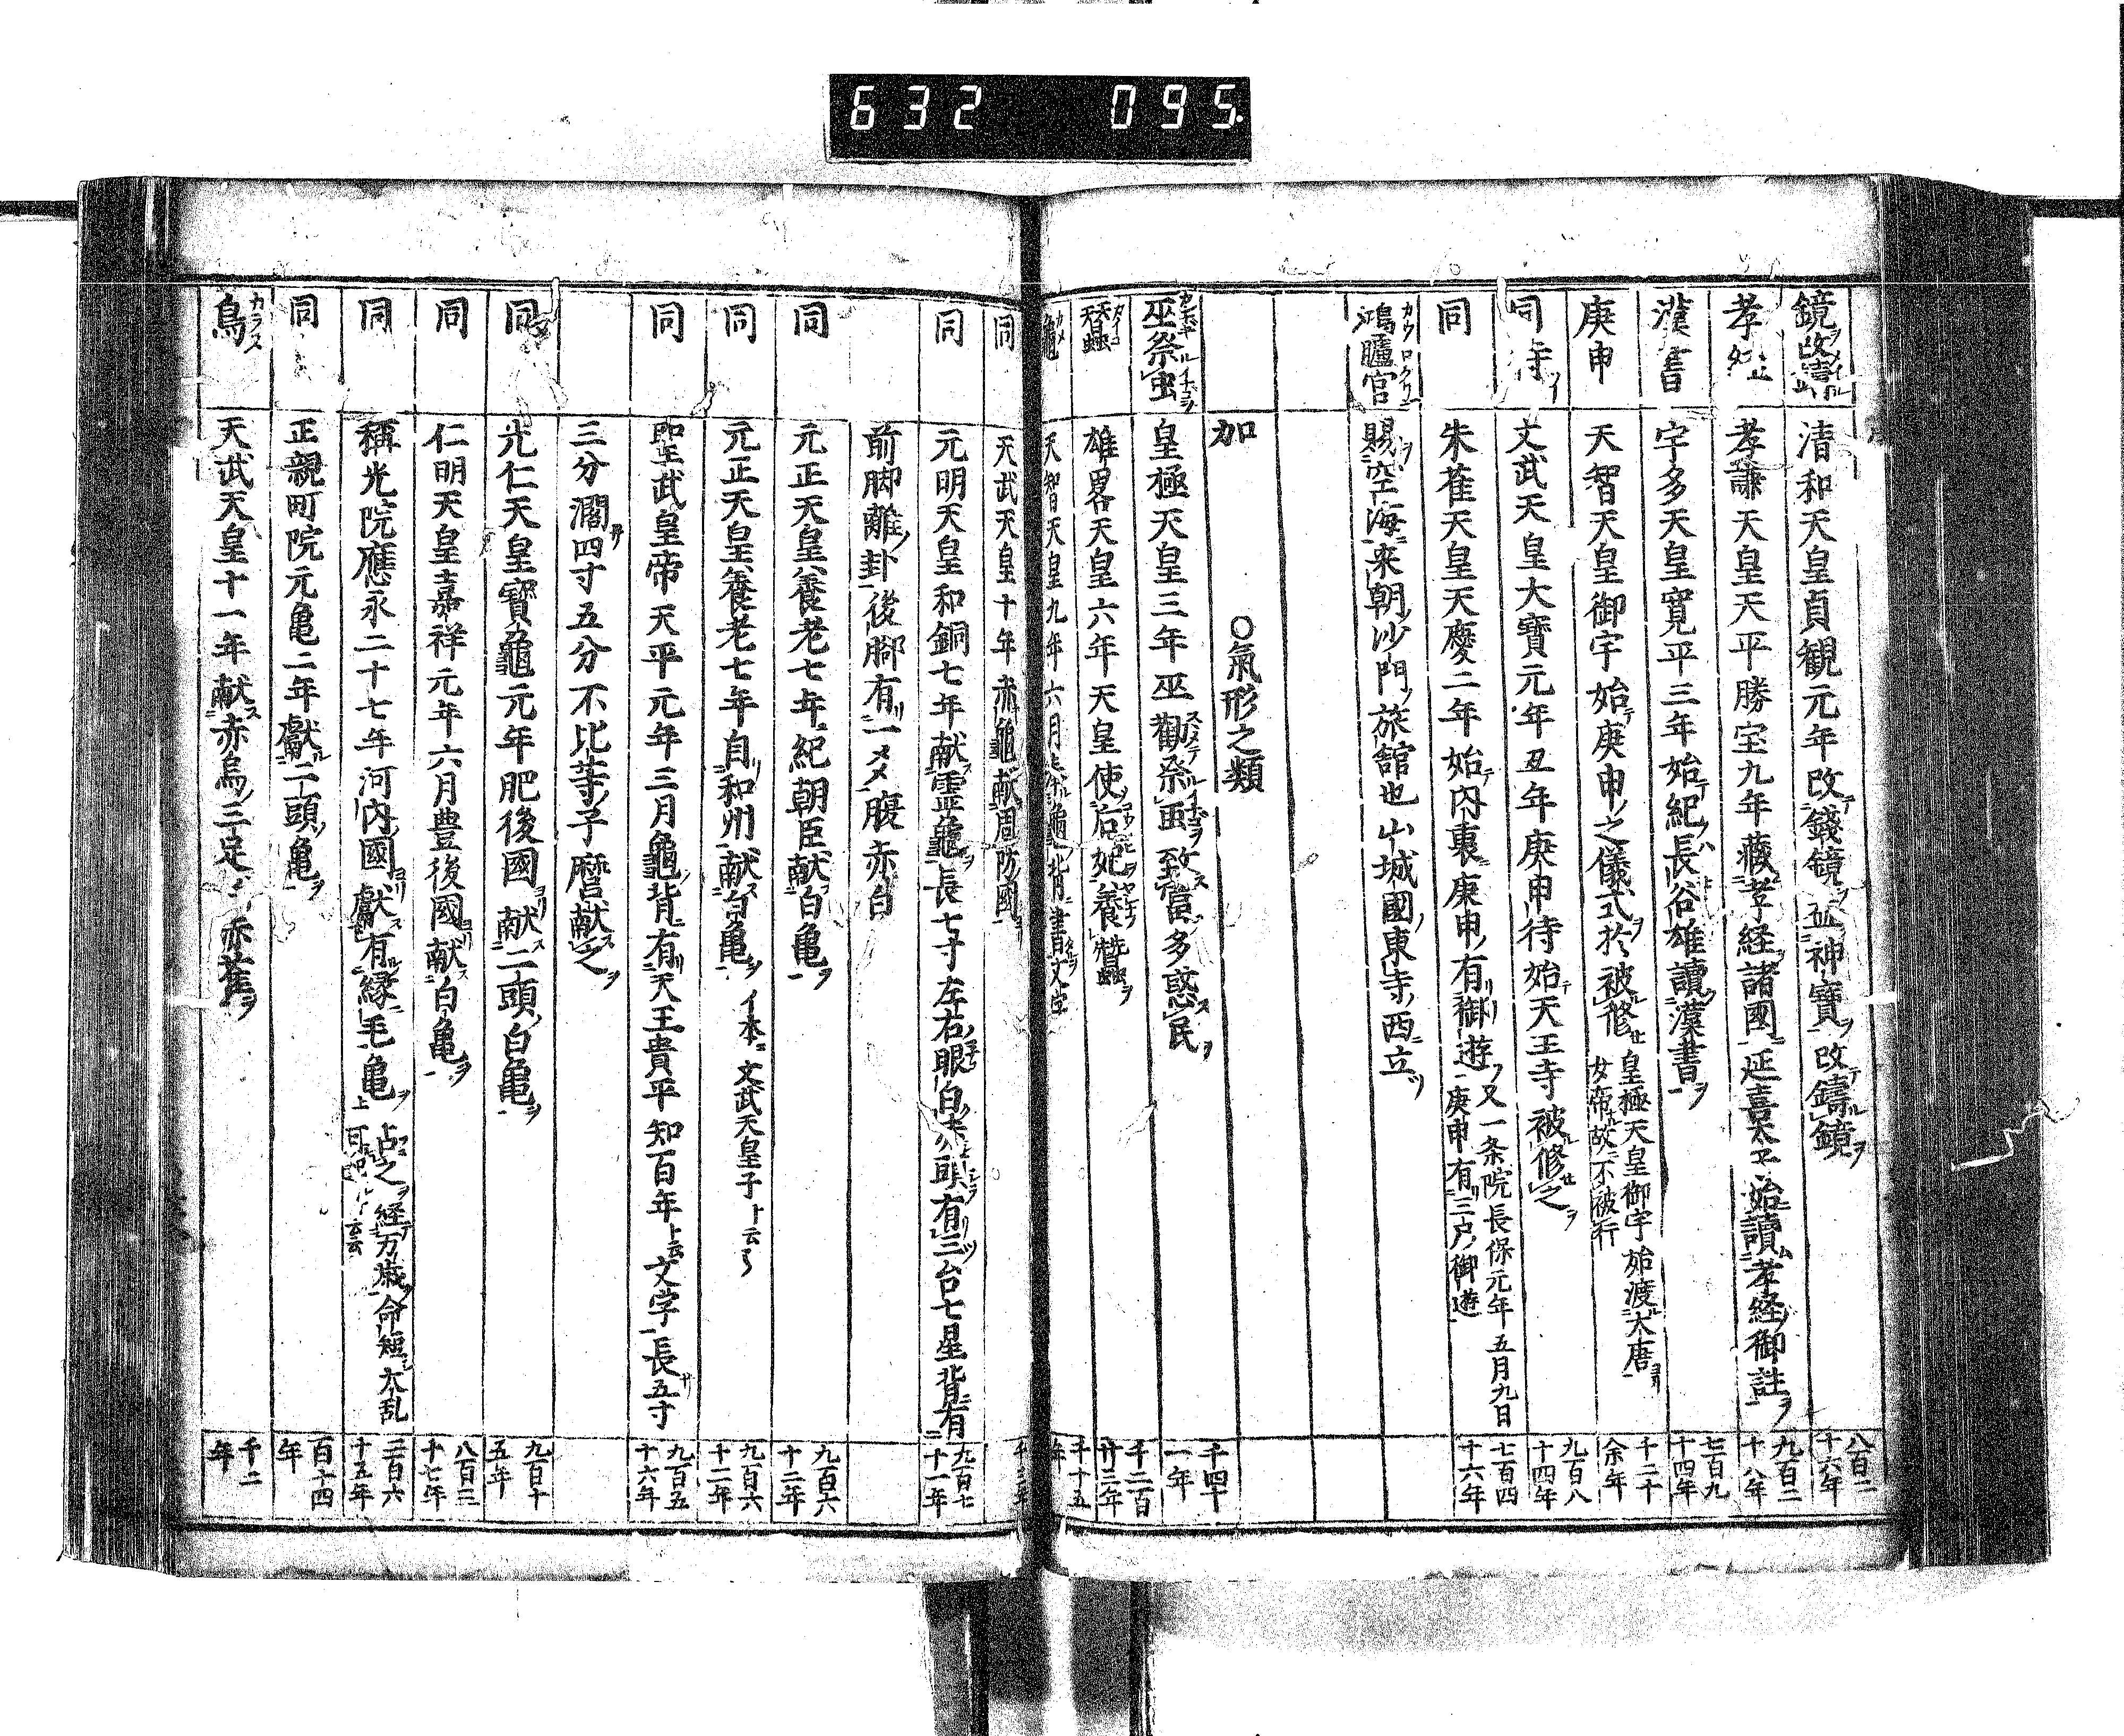 632 095.
鏡改鑄 清和天皇貞観元年改錢鏡並神寶改鑄鏡 八百二十六年
孝経 孝謙天皇天平勝宝九年藏孝経諸國延喜太子始讀孝経御註 九百二十八年
漢書 宇多天皇寛平三年始紀長谷雄讀漢書 七百九十四年
庚申 天智天皇御宇始庚申之儀式於被修 皇極天皇御宇始渡大唐女帝故不被行 千二十余年
同待 文武天皇大寶元年丑年庚申待始天王寺被修之 九百八十四年
同 朱雀天皇天慶二年始内裏庚申有御遊 又一条院長保元年五月九日庚申有三户御遊 七百四十六年
鴻臚官 賜空海来朝沙門旅舘也山城國東寺西立
加 ○氣形之類
巫祭虫 皇極天皇三年巫勸祭虫致富多惑民 千四十一年
蚕 雄畧天皇六年天皇使后妃養蚕 千二百廿三年
龜 天智天皇九年六月 龜背書文字 千十五年
同 天武天皇十年赤龜献周防國 千三年
同 元明天皇和銅七年献霊龜長七寸左右眼白 頭有三台七星背有 九百七十一年
前脚離卦後脚有一爻腹赤白
同 元正天皇養老七年紀朝臣献白亀 九百六十二年
同 元正天皇養老七年自和州献白亀 イ本ニ文武天皇子ト云々 九百六十二年
同 聖武皇帝天平元年三月龜背有天王貴平知百年ト云文字長五寸 九百五十六年
三分濶四寸五分不比等子麿献之
同 光仁天皇寶龜元年肥後國献二頭白亀 九百十五年
同 仁明天皇嘉祥元年六月豊後國献白亀 八百三十七年
同 稱光院應永二十七年河内國獻有緑毛亀 占之経万歳命短大乱 云云 二百六十五年
同 正親町院元亀二年獻二頭亀 百十四年
烏 天武天皇十一年献赤烏三足 赤雀 千二年